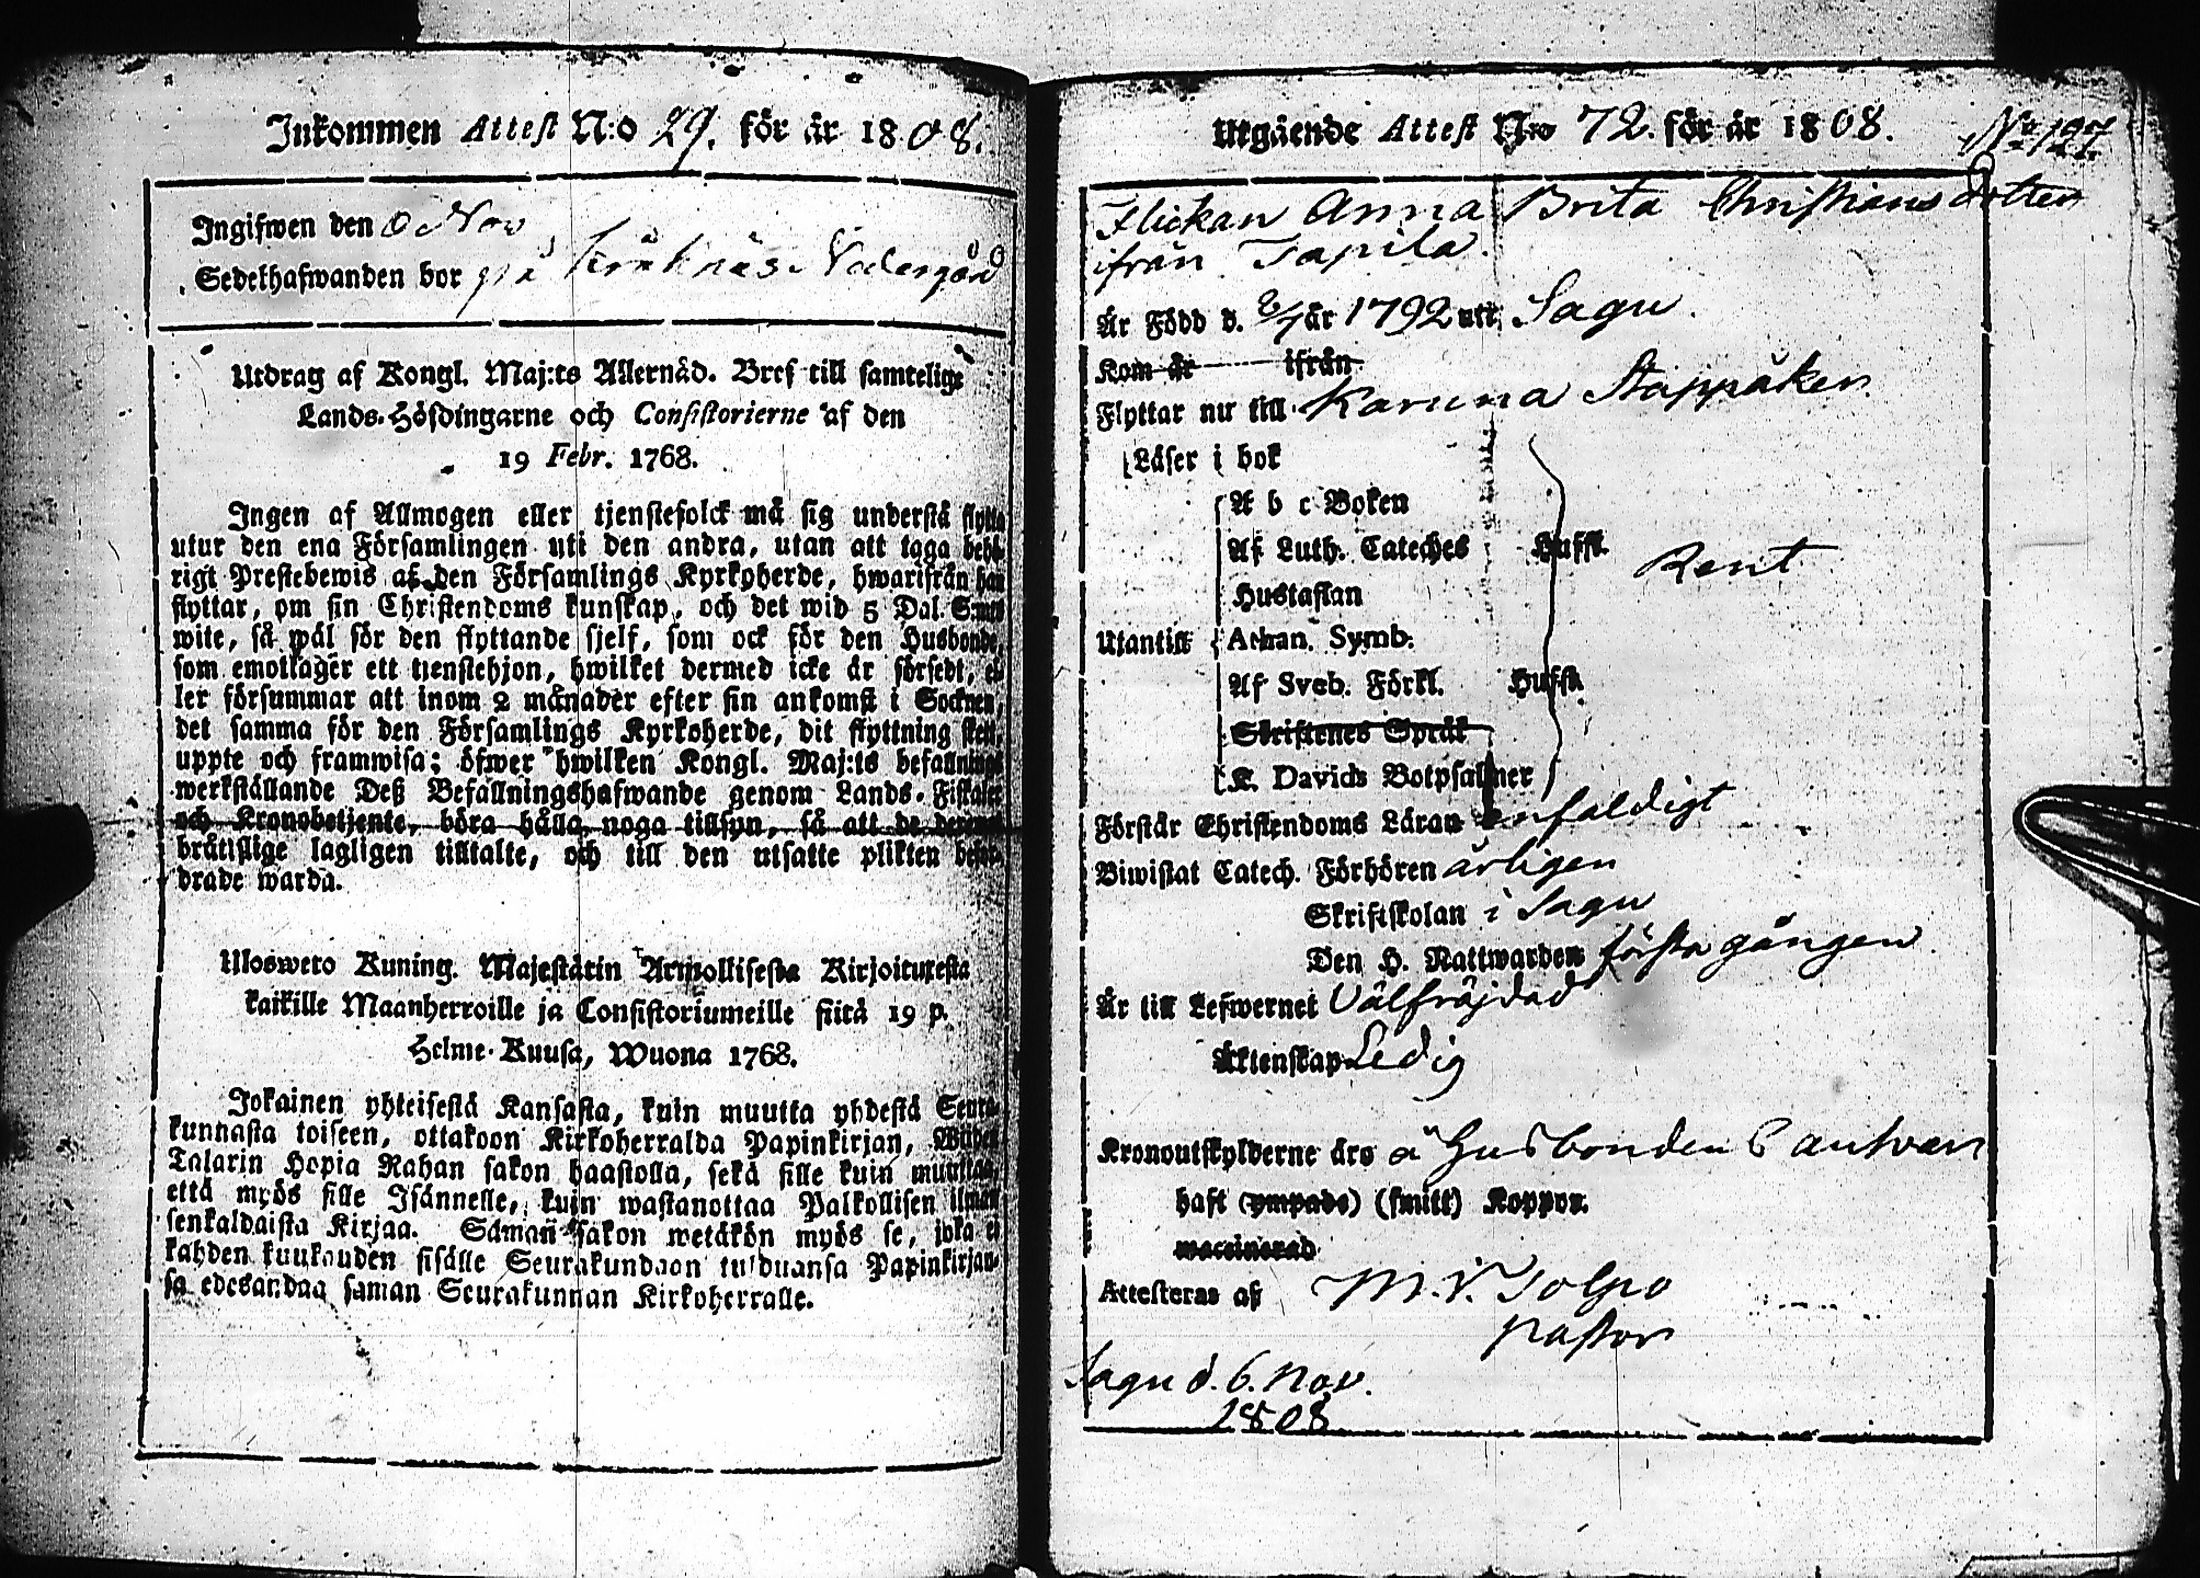 Inkommen Attest N:o 29. för år 1808.
Ingifwen den Nov
Sedelhafwanden bor på Nedergård
Utdrag af Kongl. Maj:ts Allernåd. Bref till samtelige
Lands-Höfdingarne och Consistorierne af den
19 Febr. 1768.
Ingen af Allmogen eller tjenstefolck må sig understå flytta
utur den ena Församlingen uti den andra, utan att taga behö-
rigt Prestebewis af den Församlings Kyrkoherde, hwarifrån han
flyttar, om sin Christendoms kunskap, och det wid 5 Dal. S:mts
wite, så wäl för den flyttande sjelf, som ock för den Husbonde,
som emottager ett tjenstehjon, hwilket dermed icke är försedt, el-
ler försummar att inom 2 månader efter sin ankomst i Socknen,
det samma för den Församlings Kyrkoherde, dit flyttning skett,
uppte och framwisa; öfwer hwilken Kongl. Maj:ts befallnings
werkställande Deß Befallningshafwande genom Lands-Fiskaler
och Kronobetjente, böra hålla noga tillsyn, så att de deremot
bråtslige lagligen tilltalte, och till den utsatte plikten befor-
drade warda.
Ulosweto Kuning. Majestätin Armollisesta Kirjoituxesta
kaikille Maanherroille ja Consistoriumeille siitä 19 p.
Helme-Kuusa, Wuona 1768.
Jokainen yhteisestä Kansasta, kuin muutta yhdestä Seura-
kunnasta toiseen, ottakoon Kirkoherralda Papinkirjan, Wiiden
Talarin Hopia Rahan sakon haastolla, sekä sille kuin muuttaa,
että myös sille Isännelle, kuin wastanottaa Palkollisen ilman
senkaldaista Kirjaa. Saman sakon wetäkön myös se, joka ei
kahden kuukauden sisälle Seurakundaan tulduansa Papinkirjan-
sa edesandaa saman Seurakunnan Kirkoherralle.
Utgående Attest N:o 72. för år 1808. No 127.
Flickan Anna Brita Christians dotter
ifrån Tapila.
Är Född d. 6/7 år 1792 uti Sagu.
Kom år ifrån
Flyttar nu till Karuna Stappåker
Läser i bok
A b c Boken
Af Luth. Cateches Hussl. Rent
Hustaflan
Utantill Athan. Symb.
Af Sveb. Förkl. Hussl.
Skriftenes Språk
K. Davids Botpsalmer
Förstår Christendoms Läran enfaldigt
Biwistat Catech. Förhören årligen
Skriftskolan i Sagu
Den H. Nattwarden första gången
Är till Lefwernet Välfräjdad
Äktenskap Ledig
Kronoutskylderne äro å Husbondens answar
haft (ympade) (smitt) Koppor.
waccinerad
Attesteras af M. V. Tolpo
Pastor
Sagu d. 6. Nov.
1808